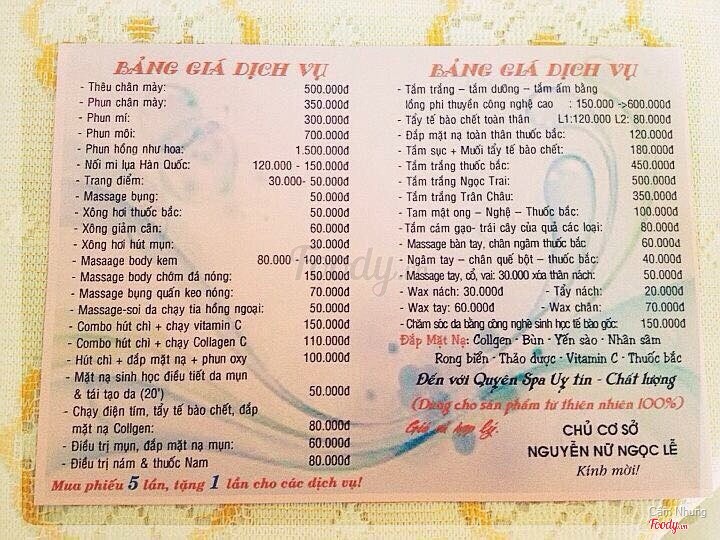 BẢNG GIÁ DỊCH VỤ
- Thêu chân mày: 500.000đ
- Phun chân mày: 350.000đ
- Phun mí: 300.000đ
- Phun môi: 700.000đ
- Phun hồng như hoa: 1.500.000đ
- Nối mi lụa Hàn Quốc: 120.000 - 150.000đ
- Trang điểm: 30.000- 50.000đ
- Massage bụng: 50.000đ
- Xông hơi thuốc bắc: 50.000đ
- Xông giảm cân: 60.000đ
- Xông hơi hút mụn: 30.000đ
- Masaage body kem 80.000 - 100.000đ
- Massage body chờm đá nóng: 150.000đ
- Massage bụng quấn keo nóng: 70.000đ
- Massage-soi da chạy tia hồng ngoại: 50.000đ
- Combo hút chì + chạy vitamin C 150.000đ
- Combo hút chì + chạy Collagen C 110.000đ
- Hút chì + đắp mặt nạ + phun oxy 100.000đ
- Mặt nạ sinh học điều tiết da mụn
& tái tạo da (20') 50.000đ
- Chạy điện tím, tẩy tế bào chết, đắp
mặt nạ Collgen: 80.000đ
- Điều trị mụn, đắp mặt nạ mụn: 60.000đ
- Điều trị nám & thuốc Nam 80.000đ
Mua phiếu 5 lần, tặng 1 lần cho các dịch vụ!
BẢNG GIÁ DỊCH VỤ
- Tắm trắng – tắm dưỡng – tắm ấm bằng
lồng phi thuyền công nghệ cao : 150.000 ->600.000đ
- Tẩy tế bào chết toàn thân L1:120.000 L2: 80.000đ
- Đắp mặt nạ toàn thân thuốc bắc: 120.000đ
- Tắm sục + Muối tẩy tế bào chết: 180.000đ
- Tắm trắng thuốc bắc: 450.000đ
- Tắm trắng Ngọc Trai: 500.000đ
- Tắm trắng Trân Châu: 350.000đ
- Tam mật ong – Nghệ – Thuốc bắc: 100.000đ
- Tắm cám gạo- trái cây của quả các loại: 80.000đ
- Massage bàn tay, chân ngâm thuốc bắc 60.000đ
- Ngâm tay – chân quế bột – thuốc bắc: 40.000đ
- Massage tay, cổ, vai: 30.000 xóa thân nách: 50.000đ
- Wax nách: 30.000đ - Tẩy nách: 20.000đ
- Wax tay: 60.000đ - Wax chân: 70.000đ
- Chăm sóc da bằng công nghê sinh học tế bào gốc: 150.000đ
Đắp Mặt Nạ: Collgen - Bùn - Yến sào - Nhân sâm
Rong biển - Thảo dược - Vitamin C - Thuốc bắc
Đến với Quyên Spa Uy tín - Chất lượng
(Dùng cho sản phẩm từ thiên nhiên 100%)
Giá cả hợp lý.
CHỦ CƠ SỞ
NGUYỄN NỮ NGỌC LỄ
Kính mời!
Foody
Cẩm Nhung
Foody.vn